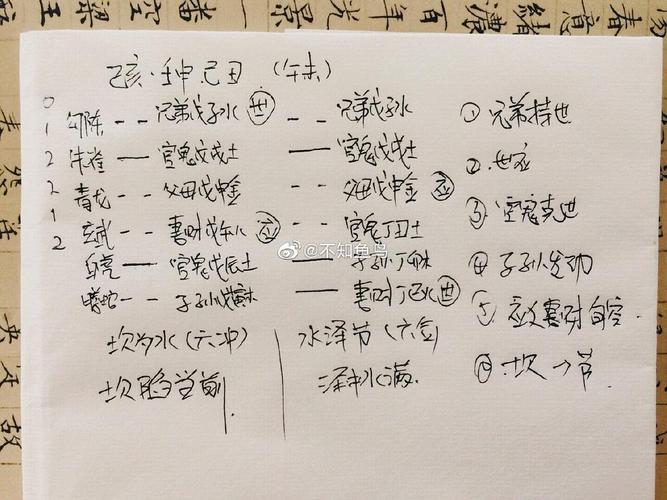 己亥·壬申·己丑 (午未)
0
1 勾陈 -- 兄弟戊子水 世 -- 兄弟戊子水 ① 兄弟持世
2 朱雀 — 官鬼戊戌土 — 官鬼戊戌土 ② 世应
2 青龙 -- 父母戊申金 -- 父母戊申金 应 ③ 官鬼克世
1 玄武 -- 妻财戊午火 应 -- 官鬼丁丑土 ④ 子孙发动
2 白虎 — 官鬼戊辰土 — 子孙丁卯木 ⑤ 应爻妻财自空
螣蛇 -- 子孙戊寅木 — 妻财丁巳火 世 ⑥ 坎→节
坎为水(六冲) 水泽节(六合)
坎陷当前. 泽中水满.
@不知鱼鸟